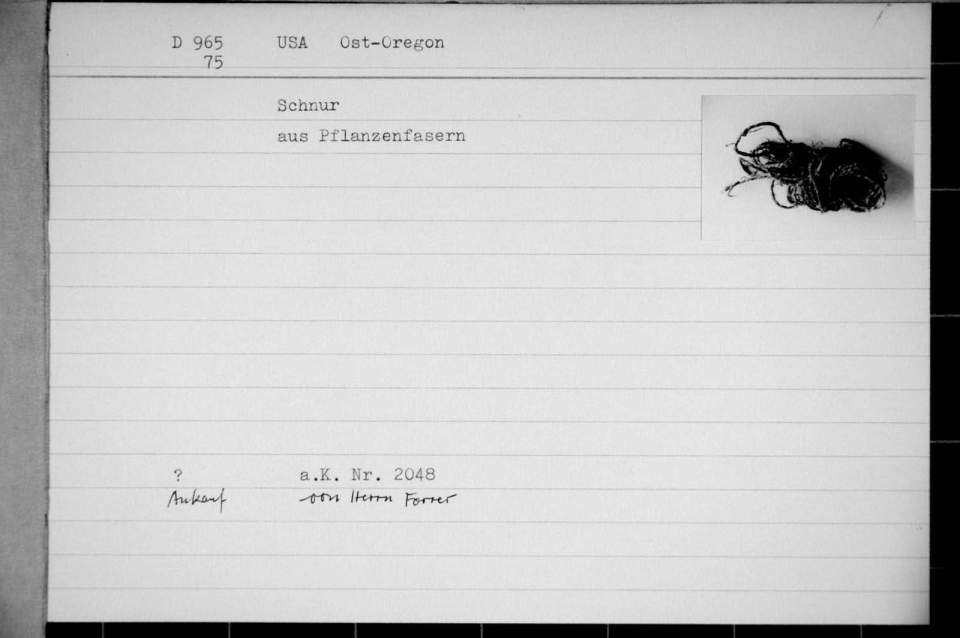 D 965 USA Ost-Oregon
75
Schnur
aus Pflanzenfasern
? a.K. Nr. 2048
Ankauf von Herrn Forrer